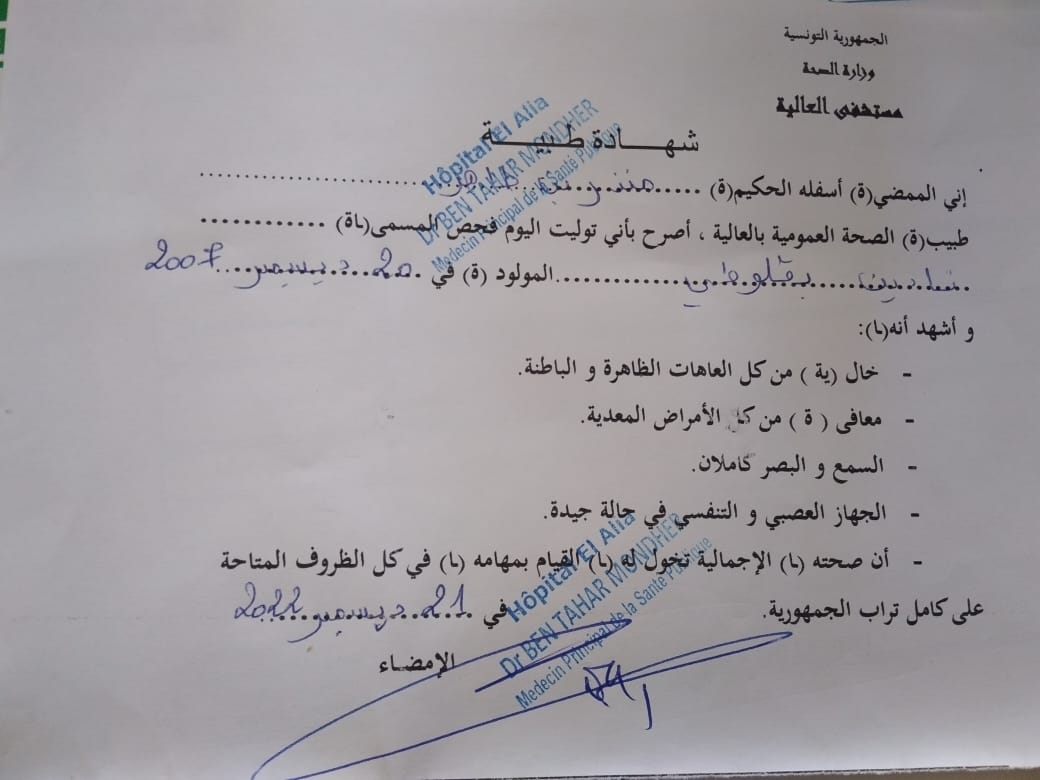 الجمهورية التونسية
وزارة الصحة
مستشفى العالية
شهــــادة طبيــــة
Hôpital El Alia
Dr BEN TAHAR MONDHER
Medecin Principal de la Santé Publique
إني الممضي(ة) أسفله الحكيم(ة) ..... منذر بن طاهر .....
طبيب(ة) الصحة العمومية بالعالية ، أصرح بأني توليت اليوم فحص المسمى(اة) ............
..... المولود (ة) في 20 ديسمبر 2007
و أشهد أنه(ا):
- خال (ية ) من كل العاهات الظاهرة و الباطنة.
- معافى ( ة ) من كل الأمراض المعدية.
- السمع و البصر كاملان.
- الجهاز العصبي و التنفسي في حالة جيدة.
- أن صحته (ا) الإجمالية تخول له (ا) القيام بمهامه (ا) في كل الظروف المتاحة
على كامل تراب الجمهورية. في 21 ديسمبر 2022
الإمضاء
Hôpital El Alia
Dr BEN TAHAR MONDHER
Medecin Principal de la Santé Publique